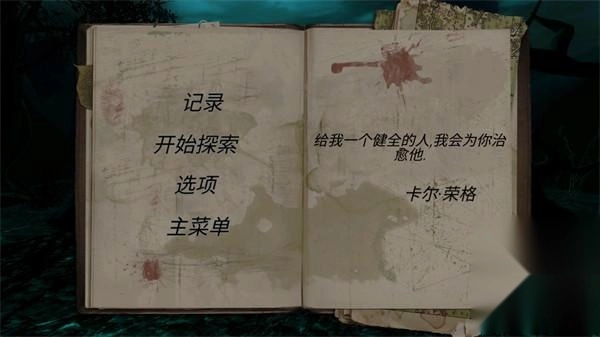 记录
开始探索
选项
主菜单
给我一个健全的人,我会为你治
愈他.
卡尔·荣格